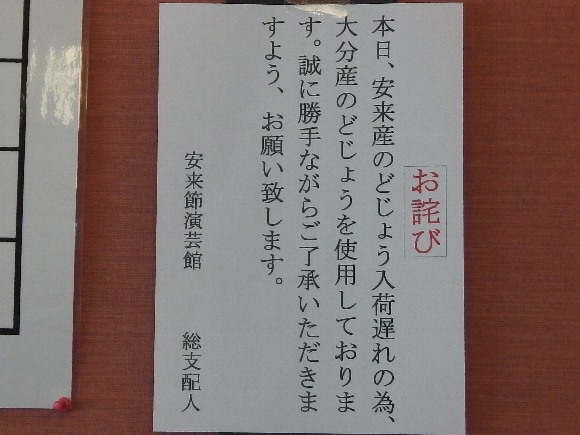 お詫び
本日、安来産のどじょう入荷遅れの為、
大分産のどじょうを使用しておりま
す。誠に勝手ながらご了承いただきま
すよう、お願い致します。
安来節演芸館 総支配人